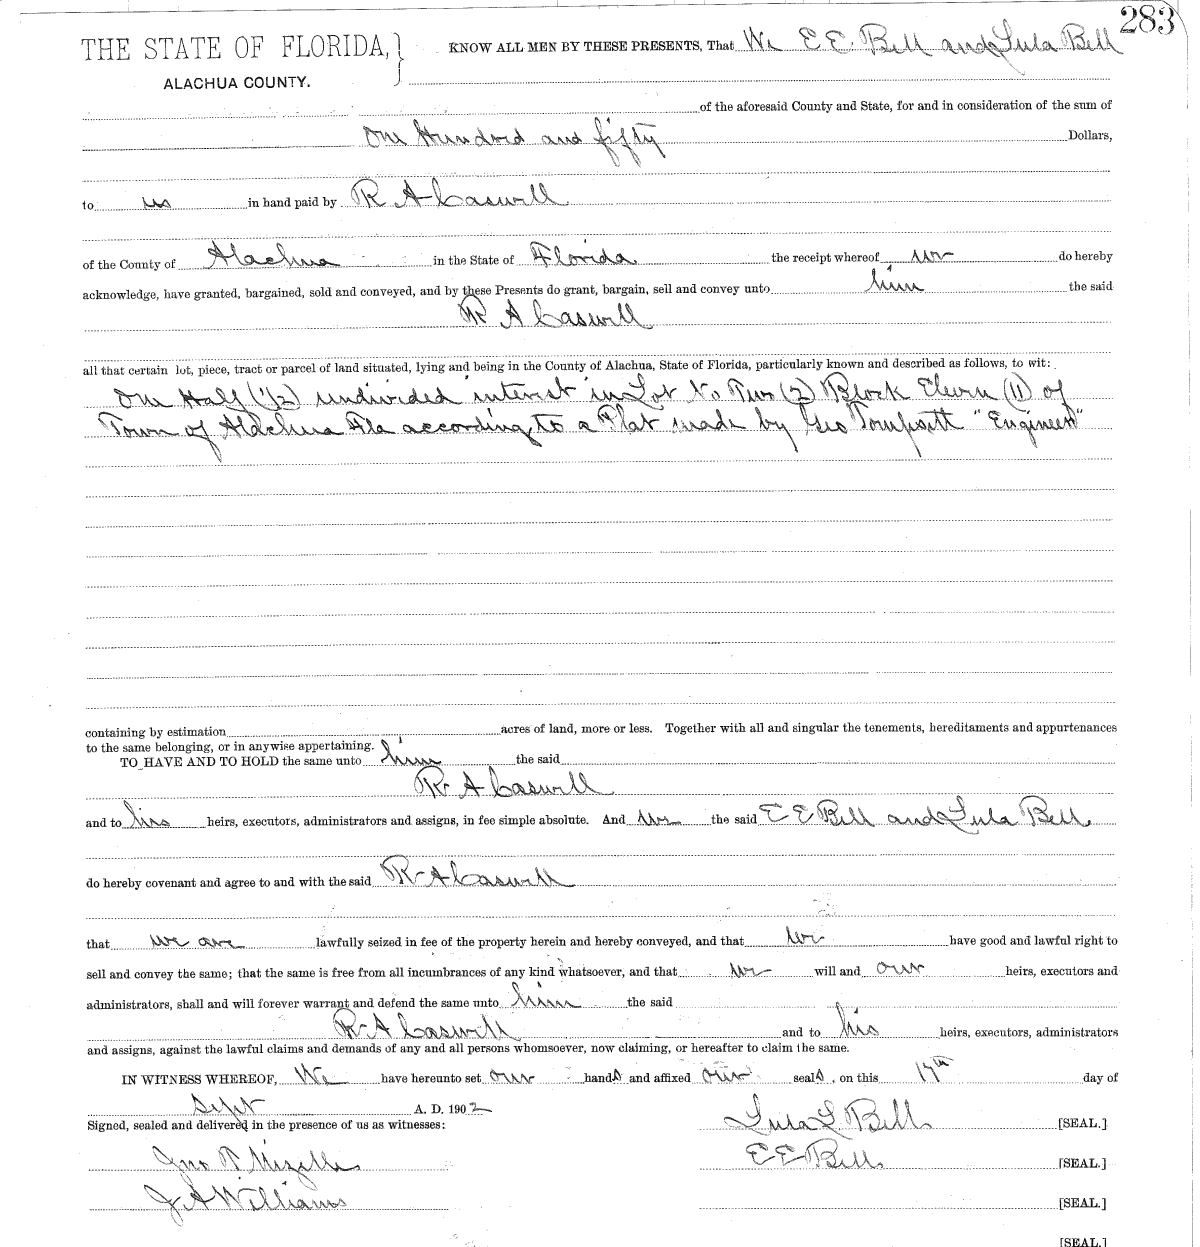 283
THE STATE OF FLORIDA,} KNOW ALL MEN BY THESE PRESENTS, That We E E Bell and Lula Bell
ALACHUA COUNTY.
of the aforesaid County and State, for and in consideration of the sum of
One Hundred and fifty Dollars,
to us in hand paid by R A Caswell
of the County of Alachua in the State of Florida the receipt whereof we do hereby
acknowledge, have granted, bargained, sold and conveyed, and by these Presents do grant, bargain, sell and convey unto him the said
R A Caswell
all that certain lot, piece, tract or parcel of land situated, lying and being in the County of Alachua, State of Florida, particularly known and described as follows, to wit:
One Half (1/2) undivided interest in Lot No Two (2) Block Eleven (11) of
Town of Alachua Fla according to a Plat made by Geo Tompsett "Engineer"
containing by estimation acres of land, more or less. Together with all and singular the tenements, hereditaments and appurtenances
to the same belonging, or in anywise appertaining.
TO HAVE AND TO HOLD the same unto him the said
R A Caswell
and to his heirs, executors, administrators and assigns, in fee simple absolute. And we the said E E Bell and Lula Bell
do hereby covenant and agree to and with the said R A Caswell
that we are lawfully seized in fee of the property herein and hereby conveyed, and that we have good and lawful right to
sell and convey the same; that the same is free from all incumbrances of any kind whatsoever, and that we will and our heirs, executors and
administrators, shall and will forever warrant and defend the same unto him the said
R A Caswell and to his heirs, executors, administrators
and assigns, against the lawful claims and demands of any and all persons whomsoever, now claiming, or hereafter to claim the same.
IN WITNESS WHEREOF, We have hereunto set our hands and affixed our seals, on this 17th day of
Sept A. D. 1902
Signed, sealed and delivered in the presence of us as witnesses:
Lula L Bell [SEAL.]
Jno P Mizelle E E Bell [SEAL.]
J A Williams [SEAL.]
[SEAL.]